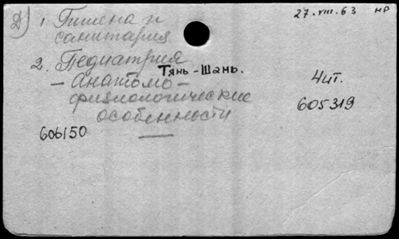 Д) 1. Гигиена и
санитария
27.VIII.63 нр
2. Педиатрия
Тянь-Шань.
- Анатомо-
физиологические
особенности
Чит.
605319
606150